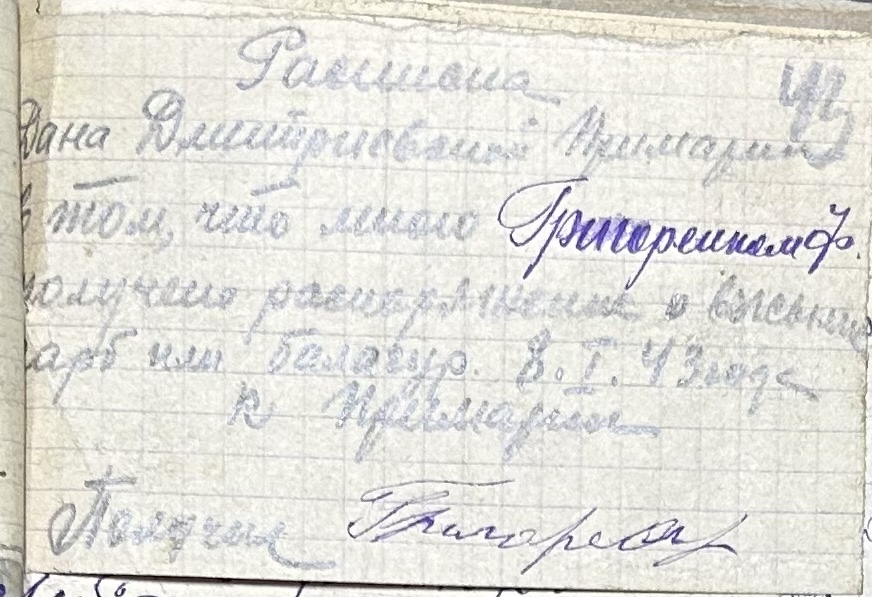 Расписка
43
Дана Дмитриевской Примарии
в том, что мною Григоренком Ф.
получено распоряжение о высылке
гарб или балагур. 8. I. 43 года
к Примарии
Получил Григоренк